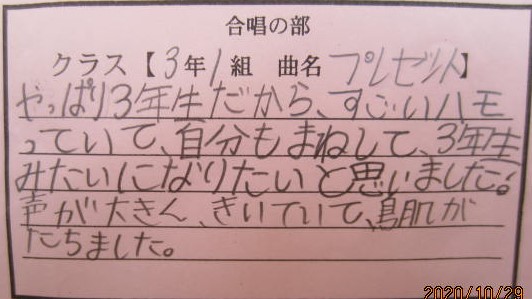 合唱の部
クラス【3年1組 曲名 プレゼント】
やっぱり3年生だから、すごいハモ
っていて、自分もまねして、3年生
みたいになりたいと思いました!
声が大きん、きいていて、鳥肌が
たちました。
2020/10/29